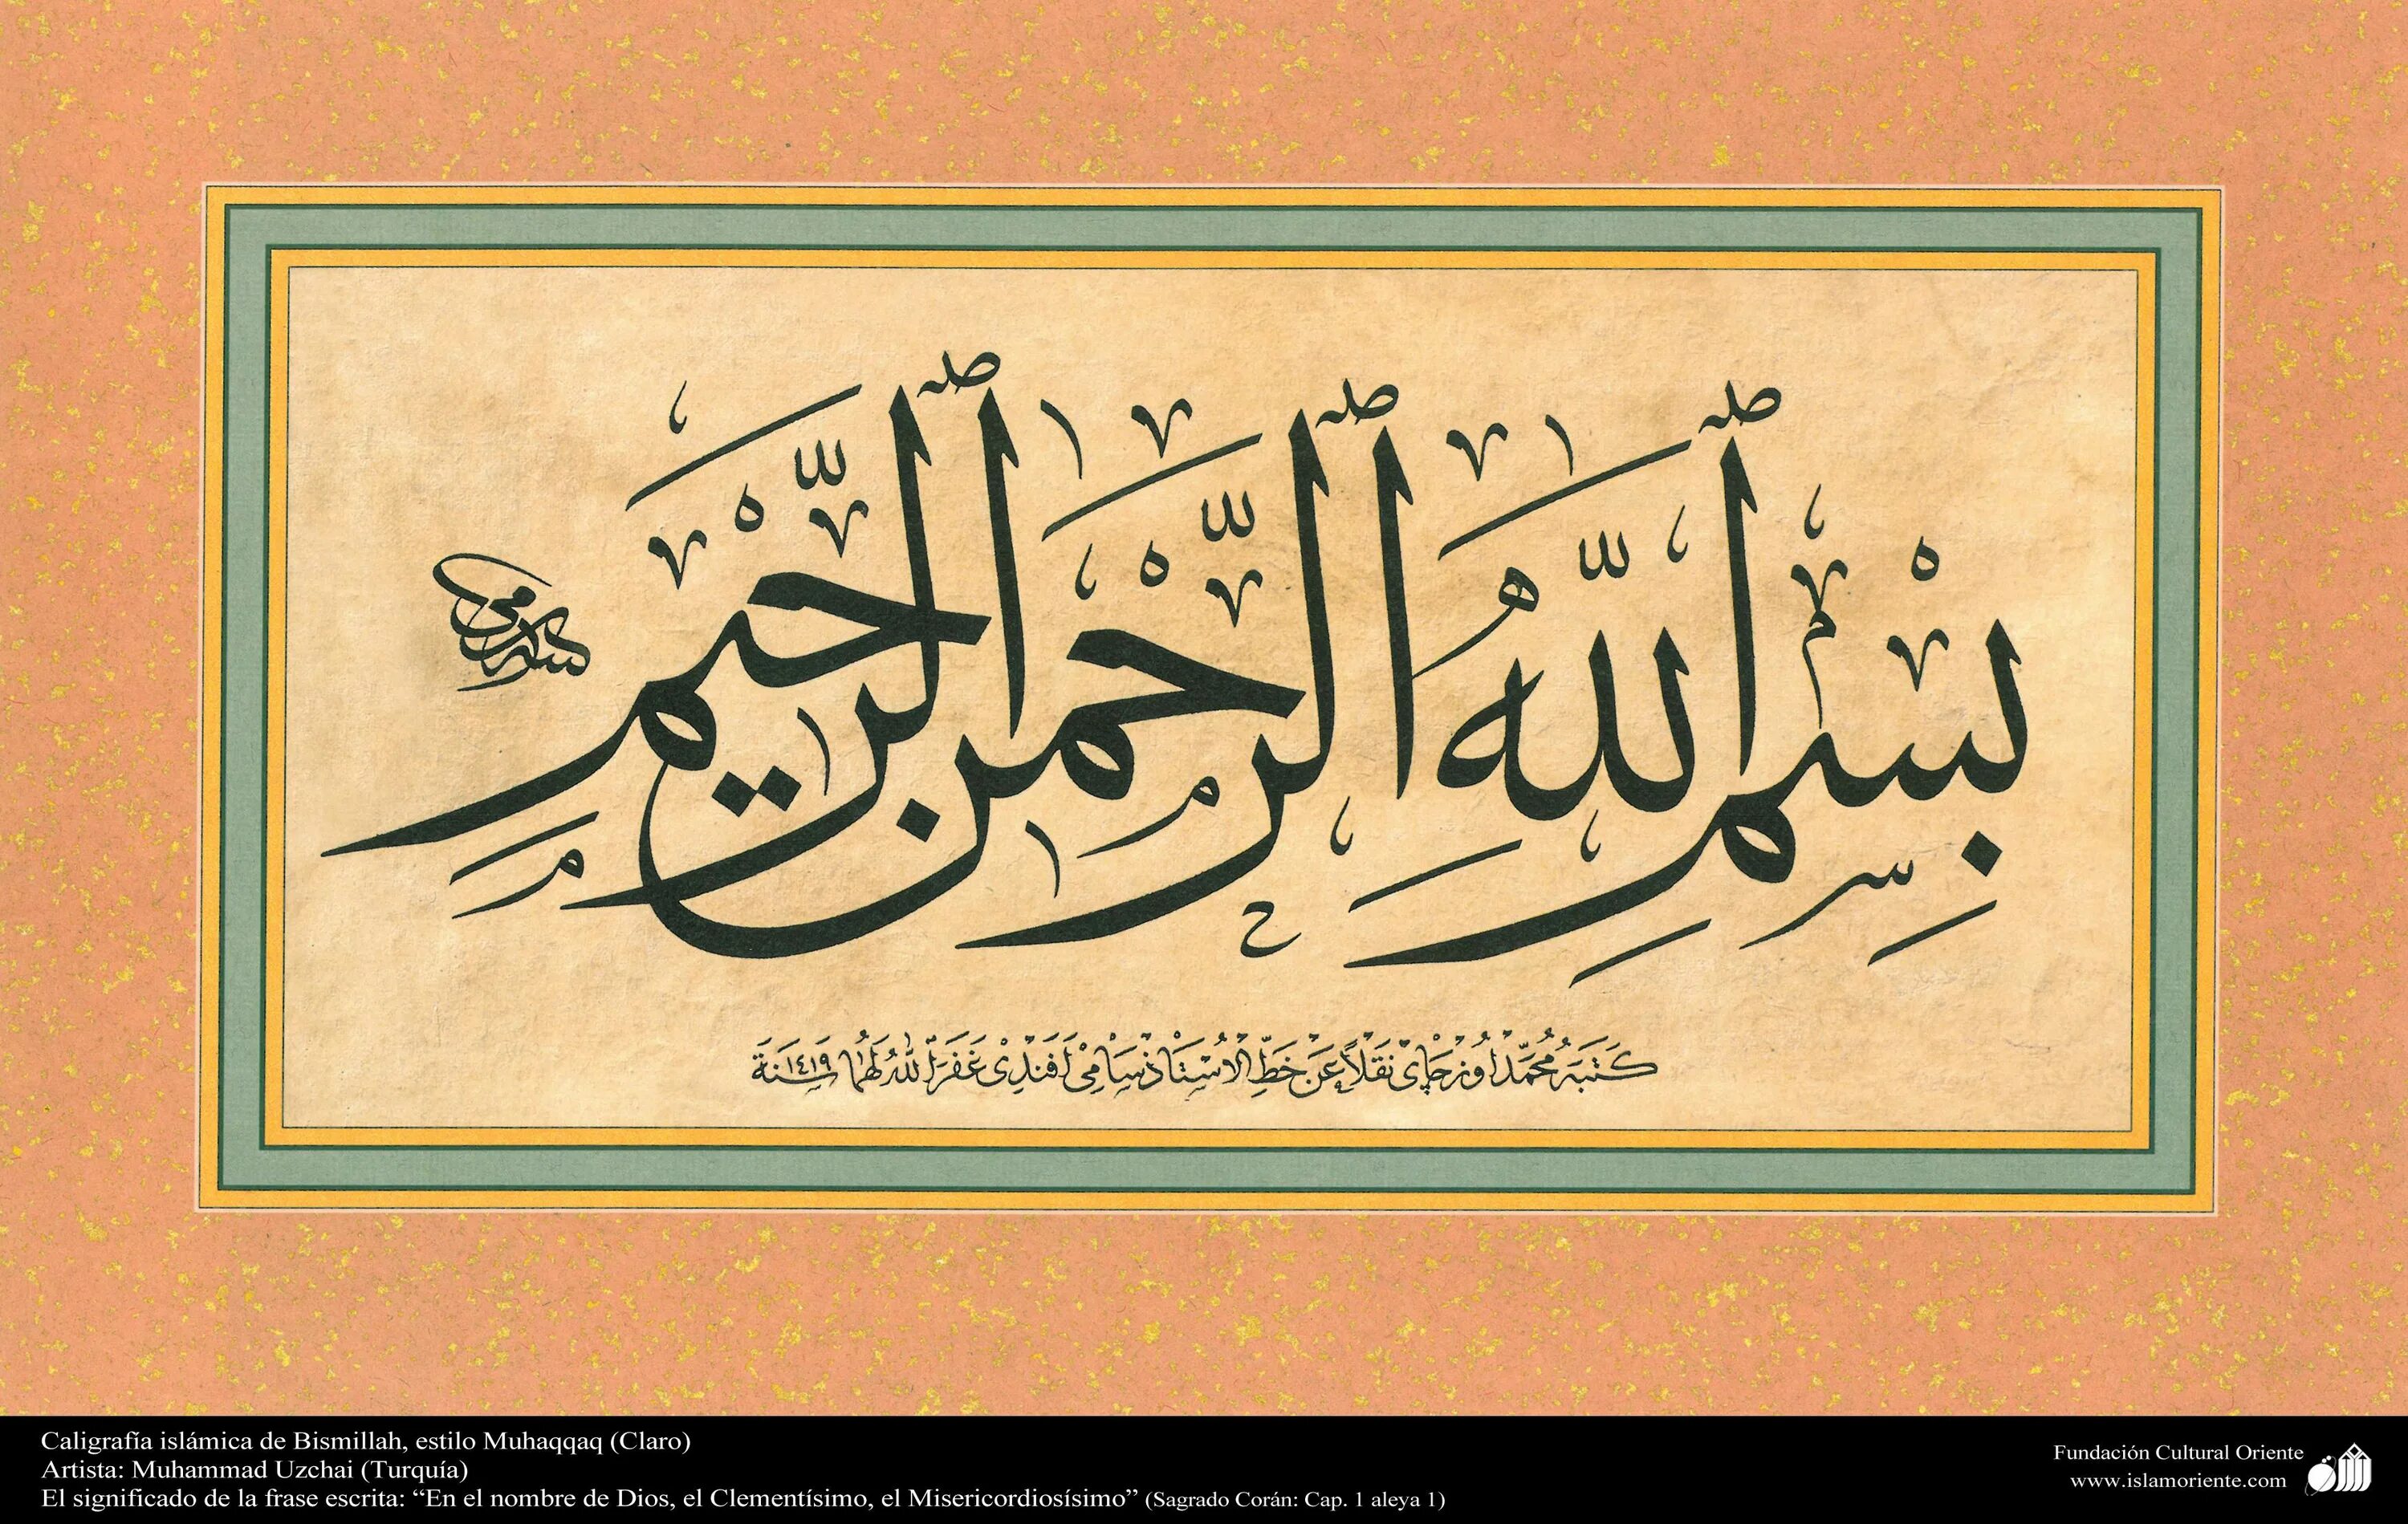 بِسْمِ ٱللَّهِ ٱلرَّحْمَٰنِ ٱلرَّحِيمِ
سامي
كَتَبَهُ مُحَمَّد اوُزچَاىْ نَقْلاً عَنْ خَطِّ الْاُسْتَاذْ سَامِىْ اَفَنْدِىْ غَفَرَ اللهُ لَهُمَا سَنَةَ ١٤١٩
Caligrafía islámica de Bismillah, estilo Muhaqqaq (Claro)
Artista: Muhammad Uzchai (Turquía)
El significado de la frase escrita: “En el nombre de Dios, el Clementísimo, el Misericordiosísimo” (Sagrado Corán: Cap. 1 aleya 1)
Fundación Cultural Oriente
www.islamoriente.com